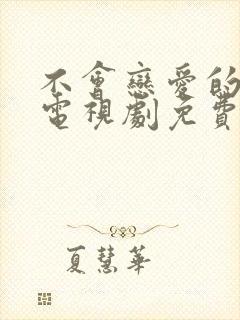 不會戀愛的
電視劇免費
夏慧華